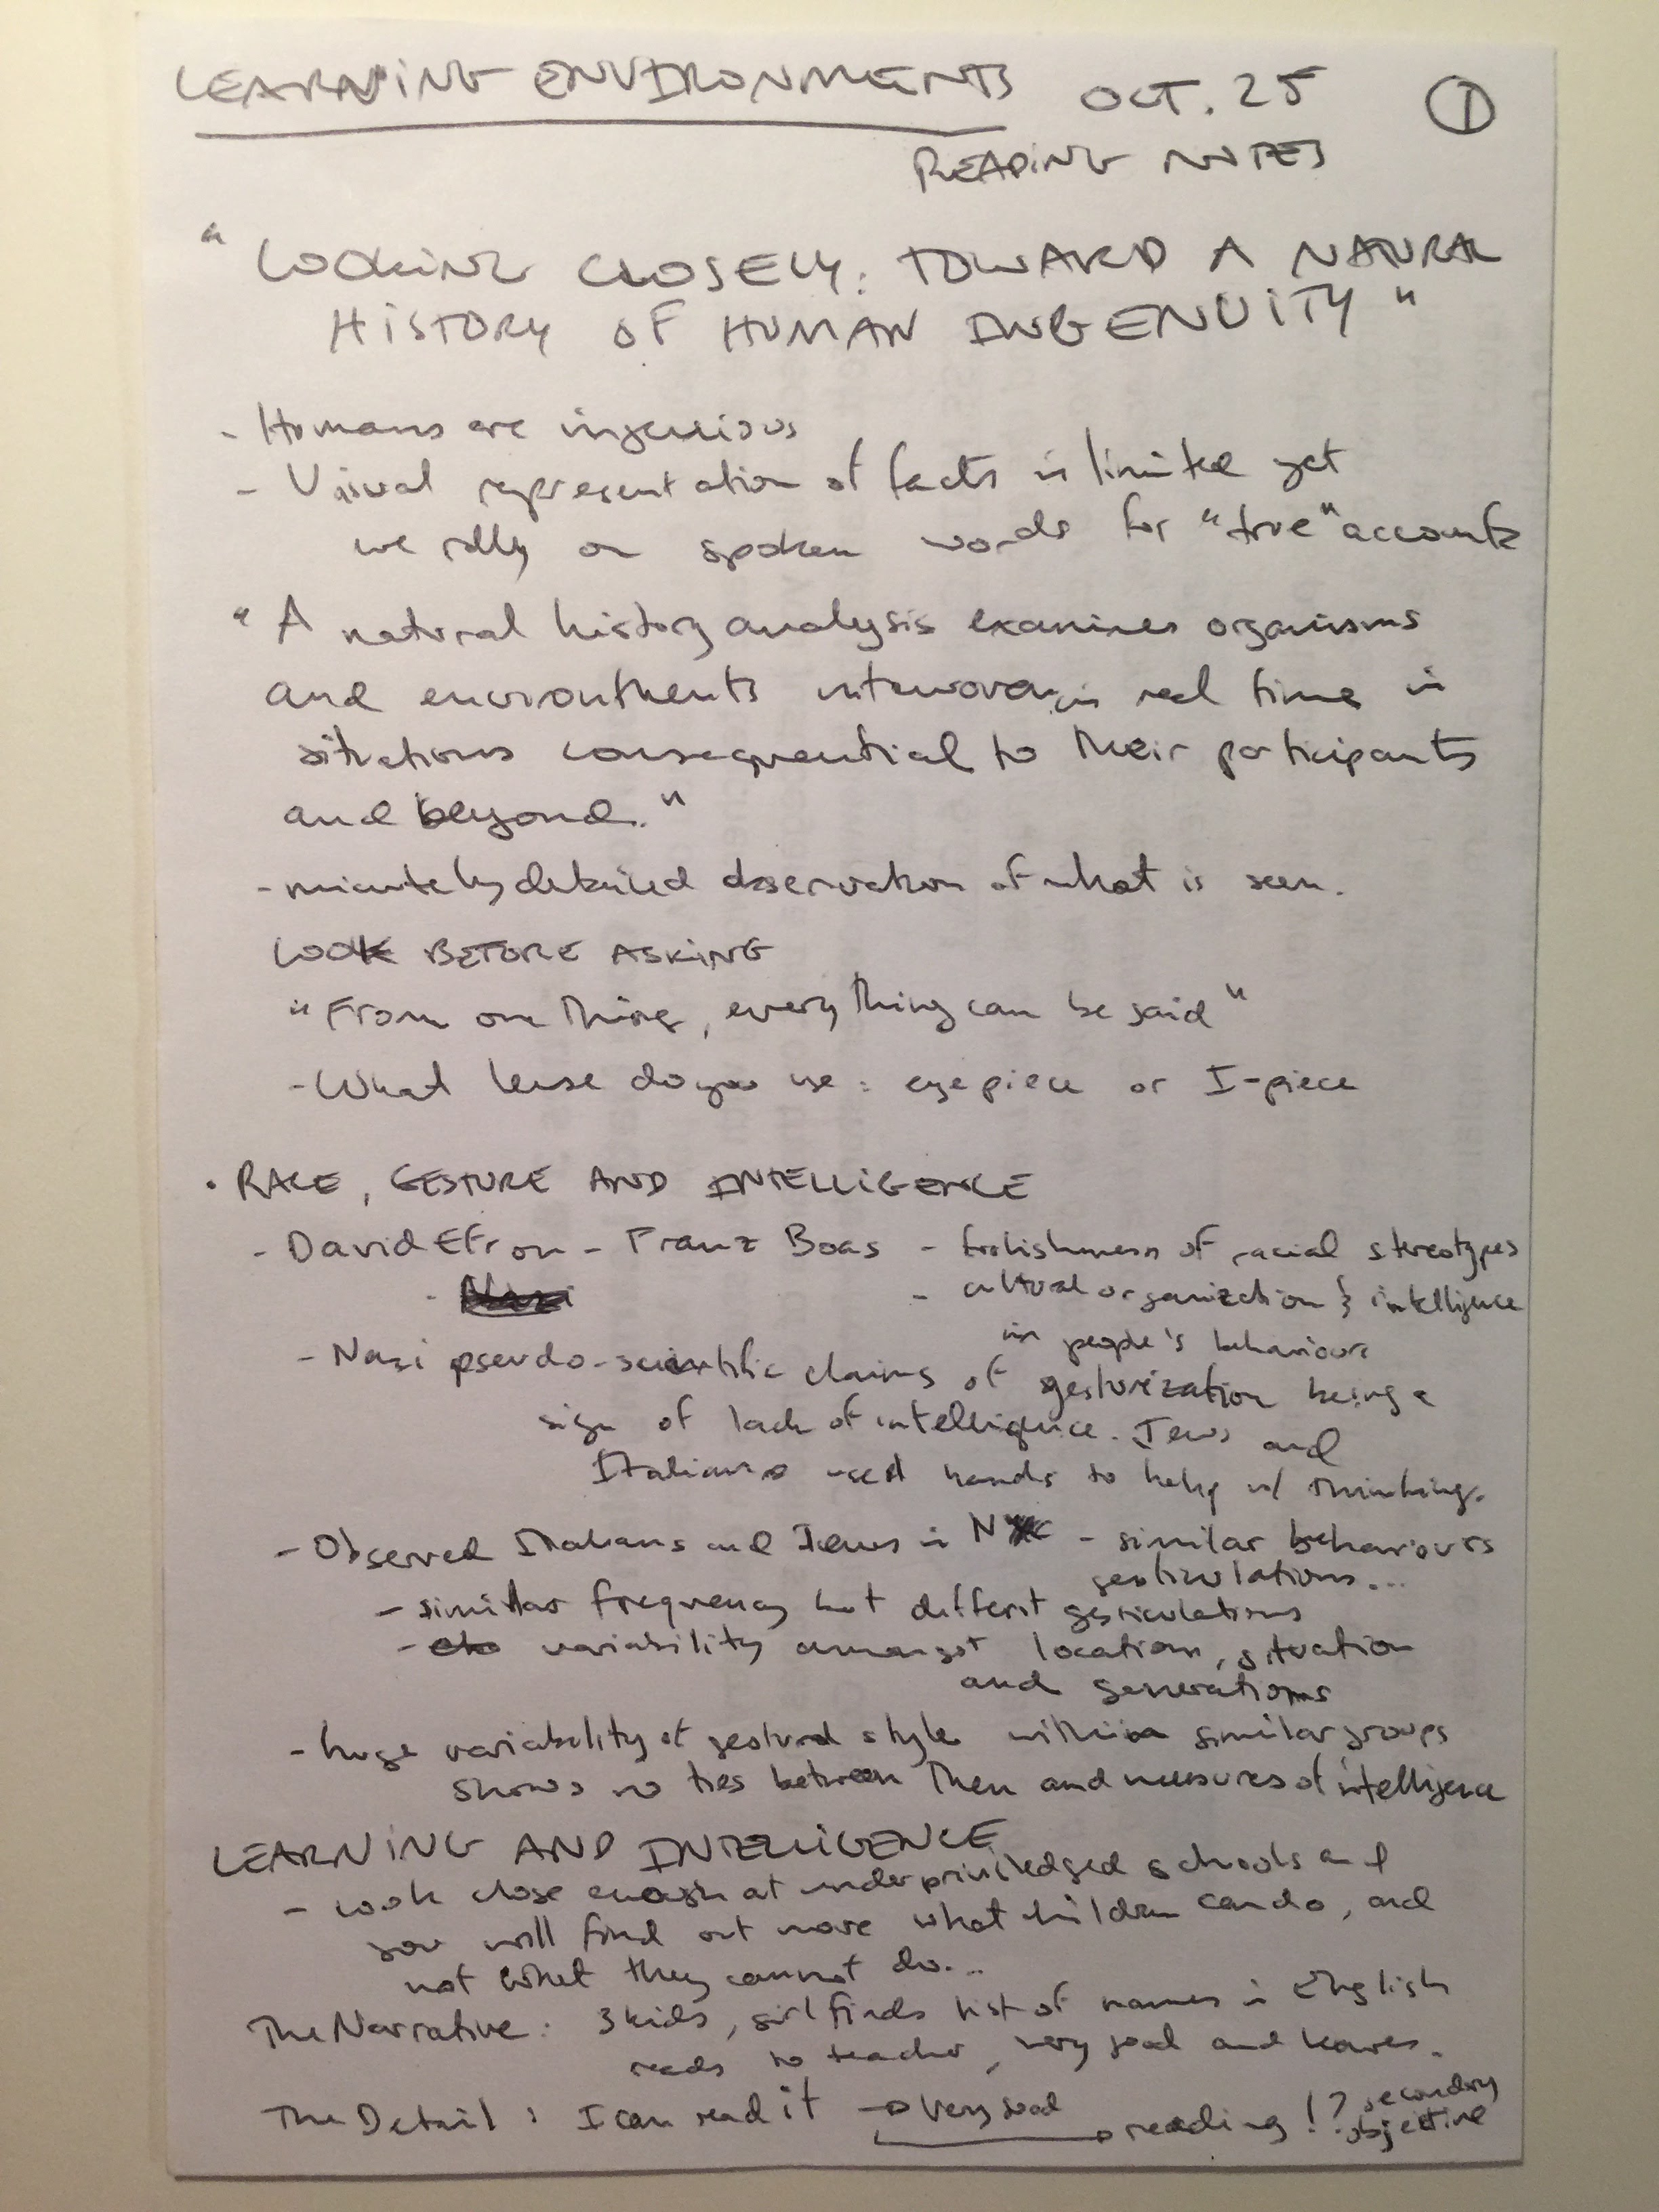 LEARNING ENVIRONMENTS OCT. 25 1
READING NOTES
"LOOKING CLOSELY: TOWARD A NATURAL
HISTORY OF HUMAN INGENUITY"
- Humans are ingenious
- Visual representation of facts is limited yet
we rely on spoken words for "true" accounts
"A natural history analysis examines organisms
and environments interwoven in real time in
situations consequential to their participants
and beyond."
- minutely detailed observation of what is seen.
LOOK BEFORE ASKING
"From one thing, everything can be said"
- What lense do you use: eyepiece or I-piece
• RACE, GESTURE AND INTELLIGENCE
- David Efron - Franz Boas - foolishness of racial stereotypes
- cultural organization & intelligence
in people's behaviours
- Nazi pseudo-scientific claims of gesturization being a
sign of lack of intelligence. Jews and
Italians used hands to help w/ thinking.
- Observed Italians and Jews in NYC - similar behaviours
gesticulations...
- similar frequency but differnt gesticulations
- variability amongst locations, situation
and generations
- huge variability of gestural style within similar groups
shows no ties between then and measures of intelligence
LEARNING AND INTELLIGENCE
- Look close enough at underpriviledged schools and
you will find out more what children can do, and
not what they cannot do...
The Narrative: 3 kids, girl finds list of names in English
reads to teacher, very good and leaves.
The Detail: I can read it → very good → reading!? secondary
objective